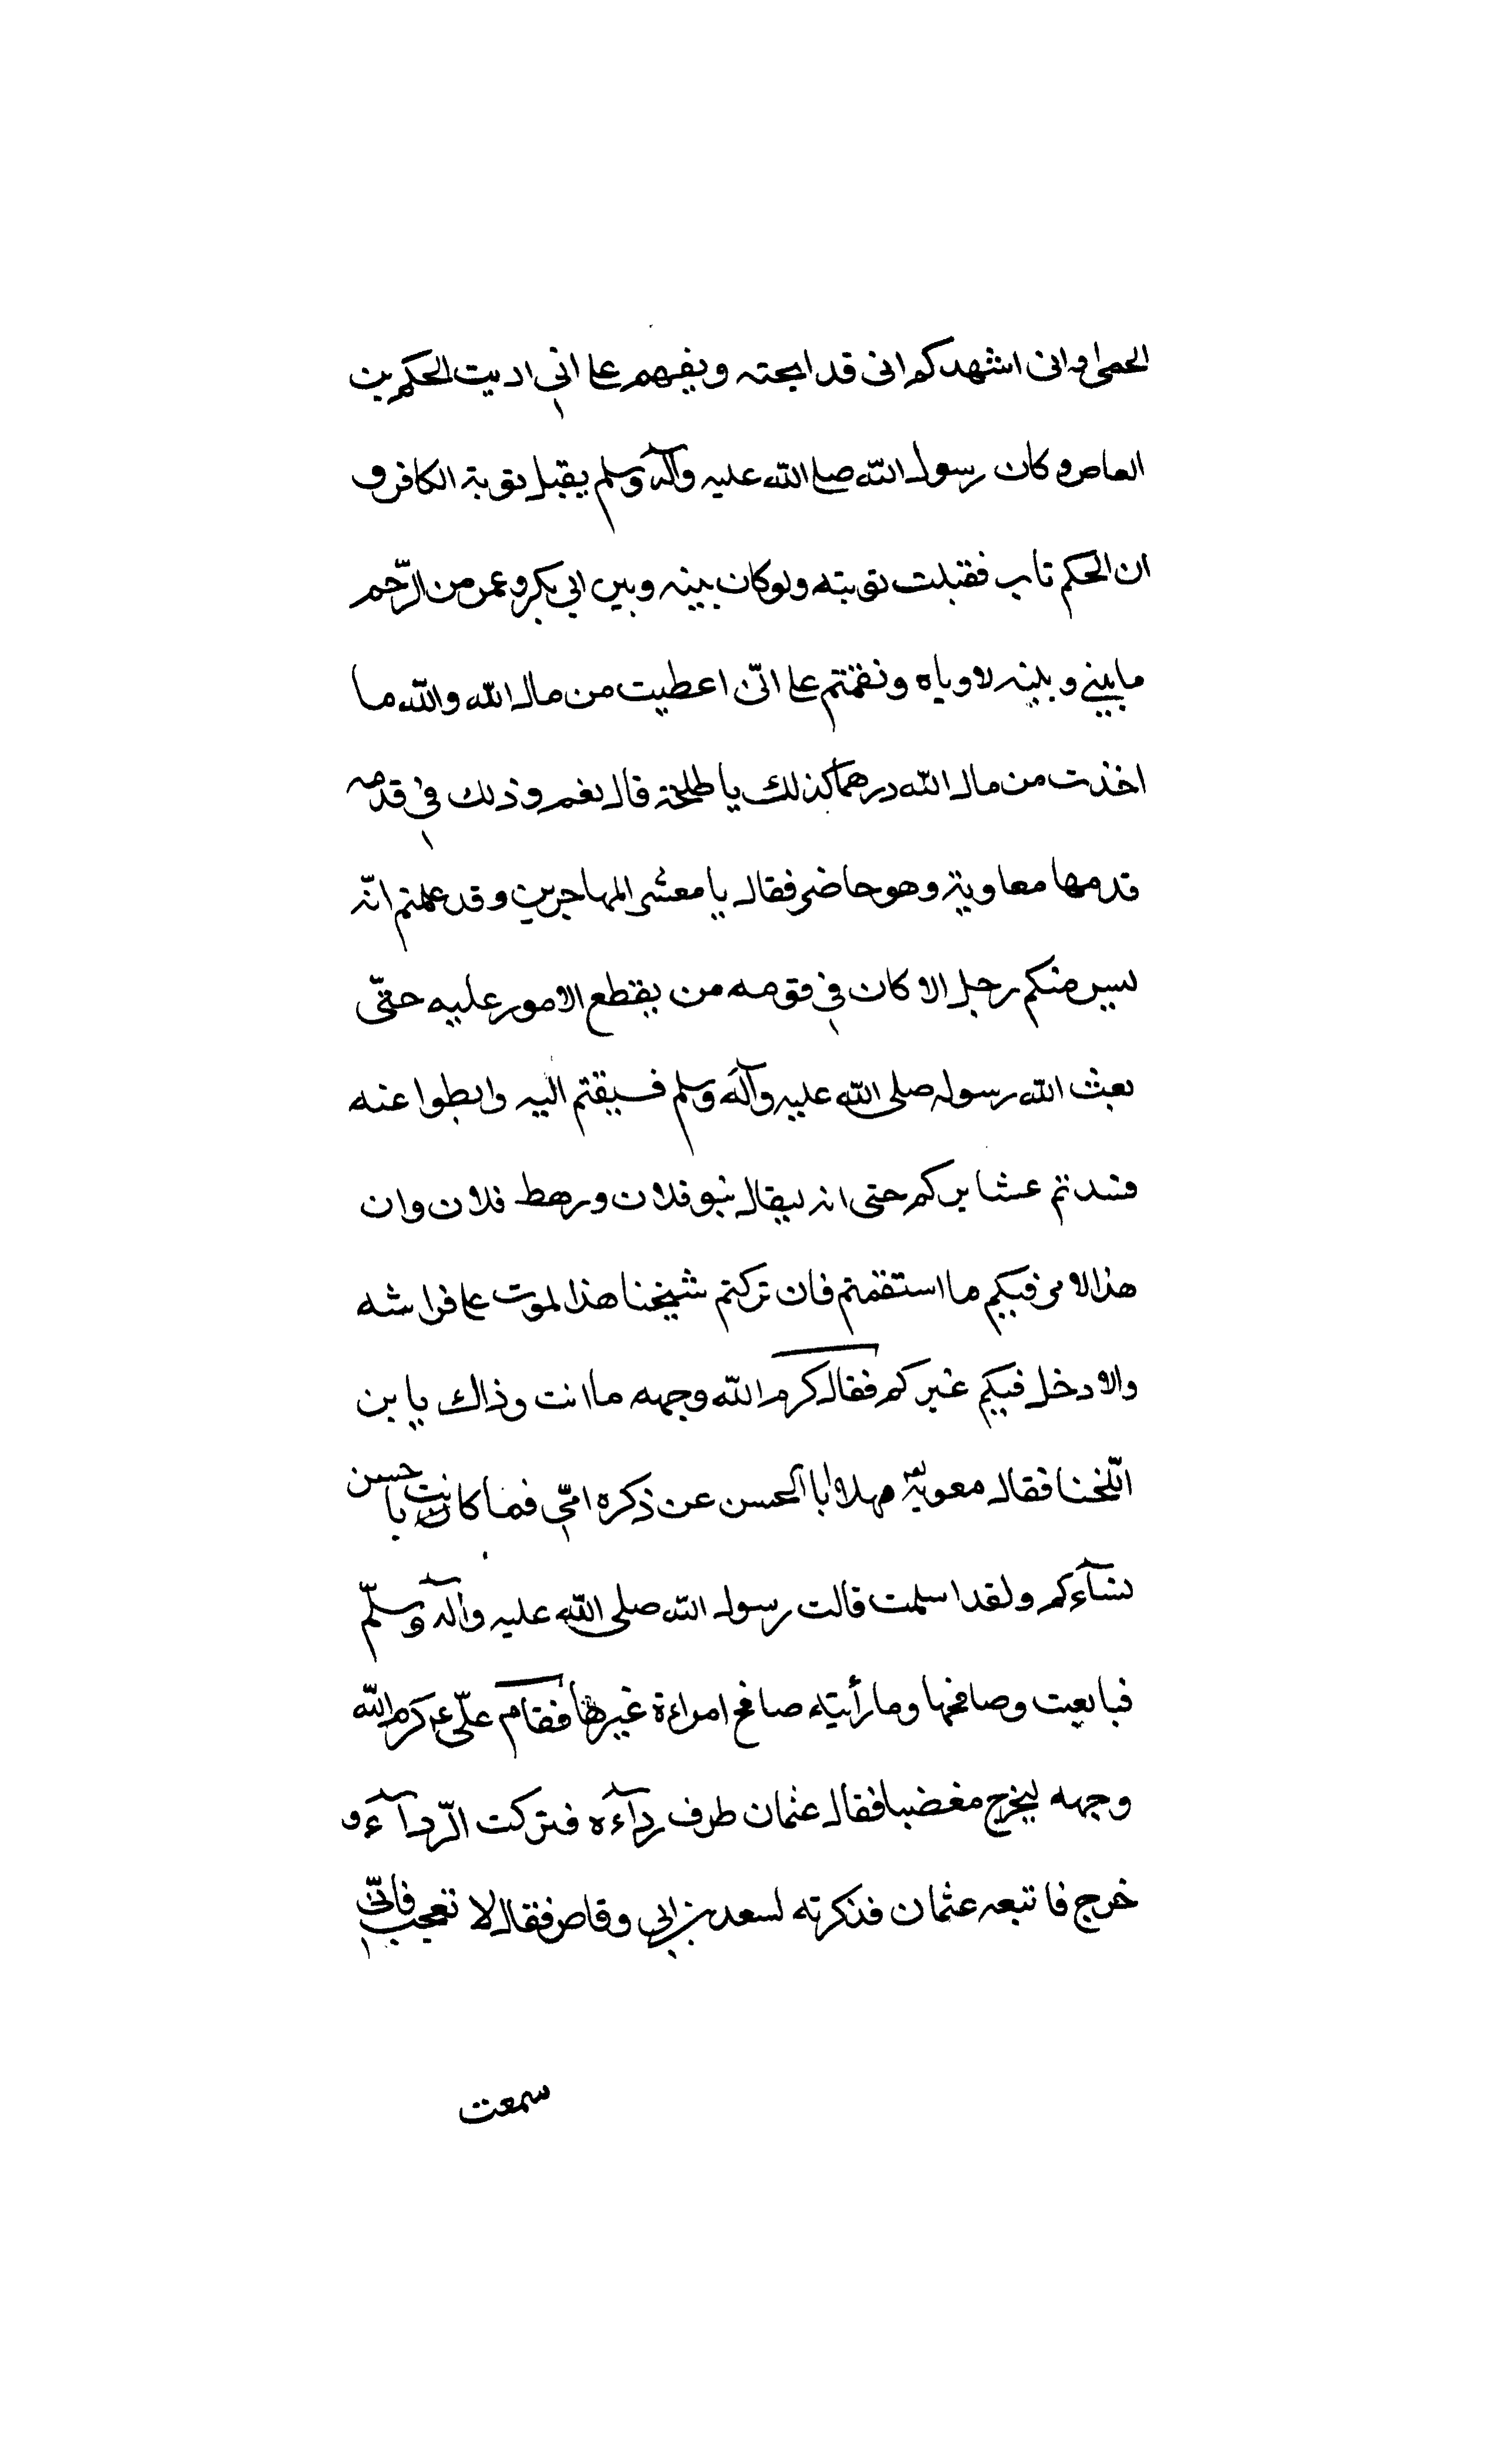 الحمى وانى اشهدكم انى قد ابحته ونفيهم علي اني اديت الحكم بن
العاص وكان رسول الله صلي الله عليه وآله وسلم يقبل توبة الكافر و
ان الحكم تاب فقبلت توبته ولو كان بينه وبين ابي بكر وعمر من الرّحم
ما بيني وبينه لاوياه ونقمتم علي انّى اعطيت من مال الله والله ما
اخذت من مال الله درهما كذلك يا طلحة قال نعم وذلك في قدمه
قدمها معاوية وهو حاضر فقال يا معشر المهاجرين وقد علمتم انّه
ليس منكم رجل الا كان في قومه من يقطع الامور عليه حتّى
بعث الله رسوله صلى الله عليه وآله وسلم فسبقتم اليه وابطوا عنه
فسدتم عشايركم حتى انه ليقال بنو فلان ورهط فلان وان
هذا الامر فيكم ما استقمتم فان تركتم شيخنا هذا لموت علي فراشه
والا دخل فيكم غيركم فقال كرم الله وجهه ما انت وذاك يا بن
اللّخنا فقال معوية مهلا ابا الحسن عن ذكره امّي فما كانت باحسن
نسآءكم ولقد اسلمت قالت رسول الله صلى الله عليه وآله وسلّم
فبايعت وصافحها وما رأيتاه صافح امراءة غيرها فقام علّي ع كرم الله
وجهه ليخرج مغضبا فقال عثمان طرف ردآءه فتركت الرّدآء و
خرج فاتبعه عثمان فذكرته لسعد بن ابي وقاص فقال لا تعجب فانّي
سمعت